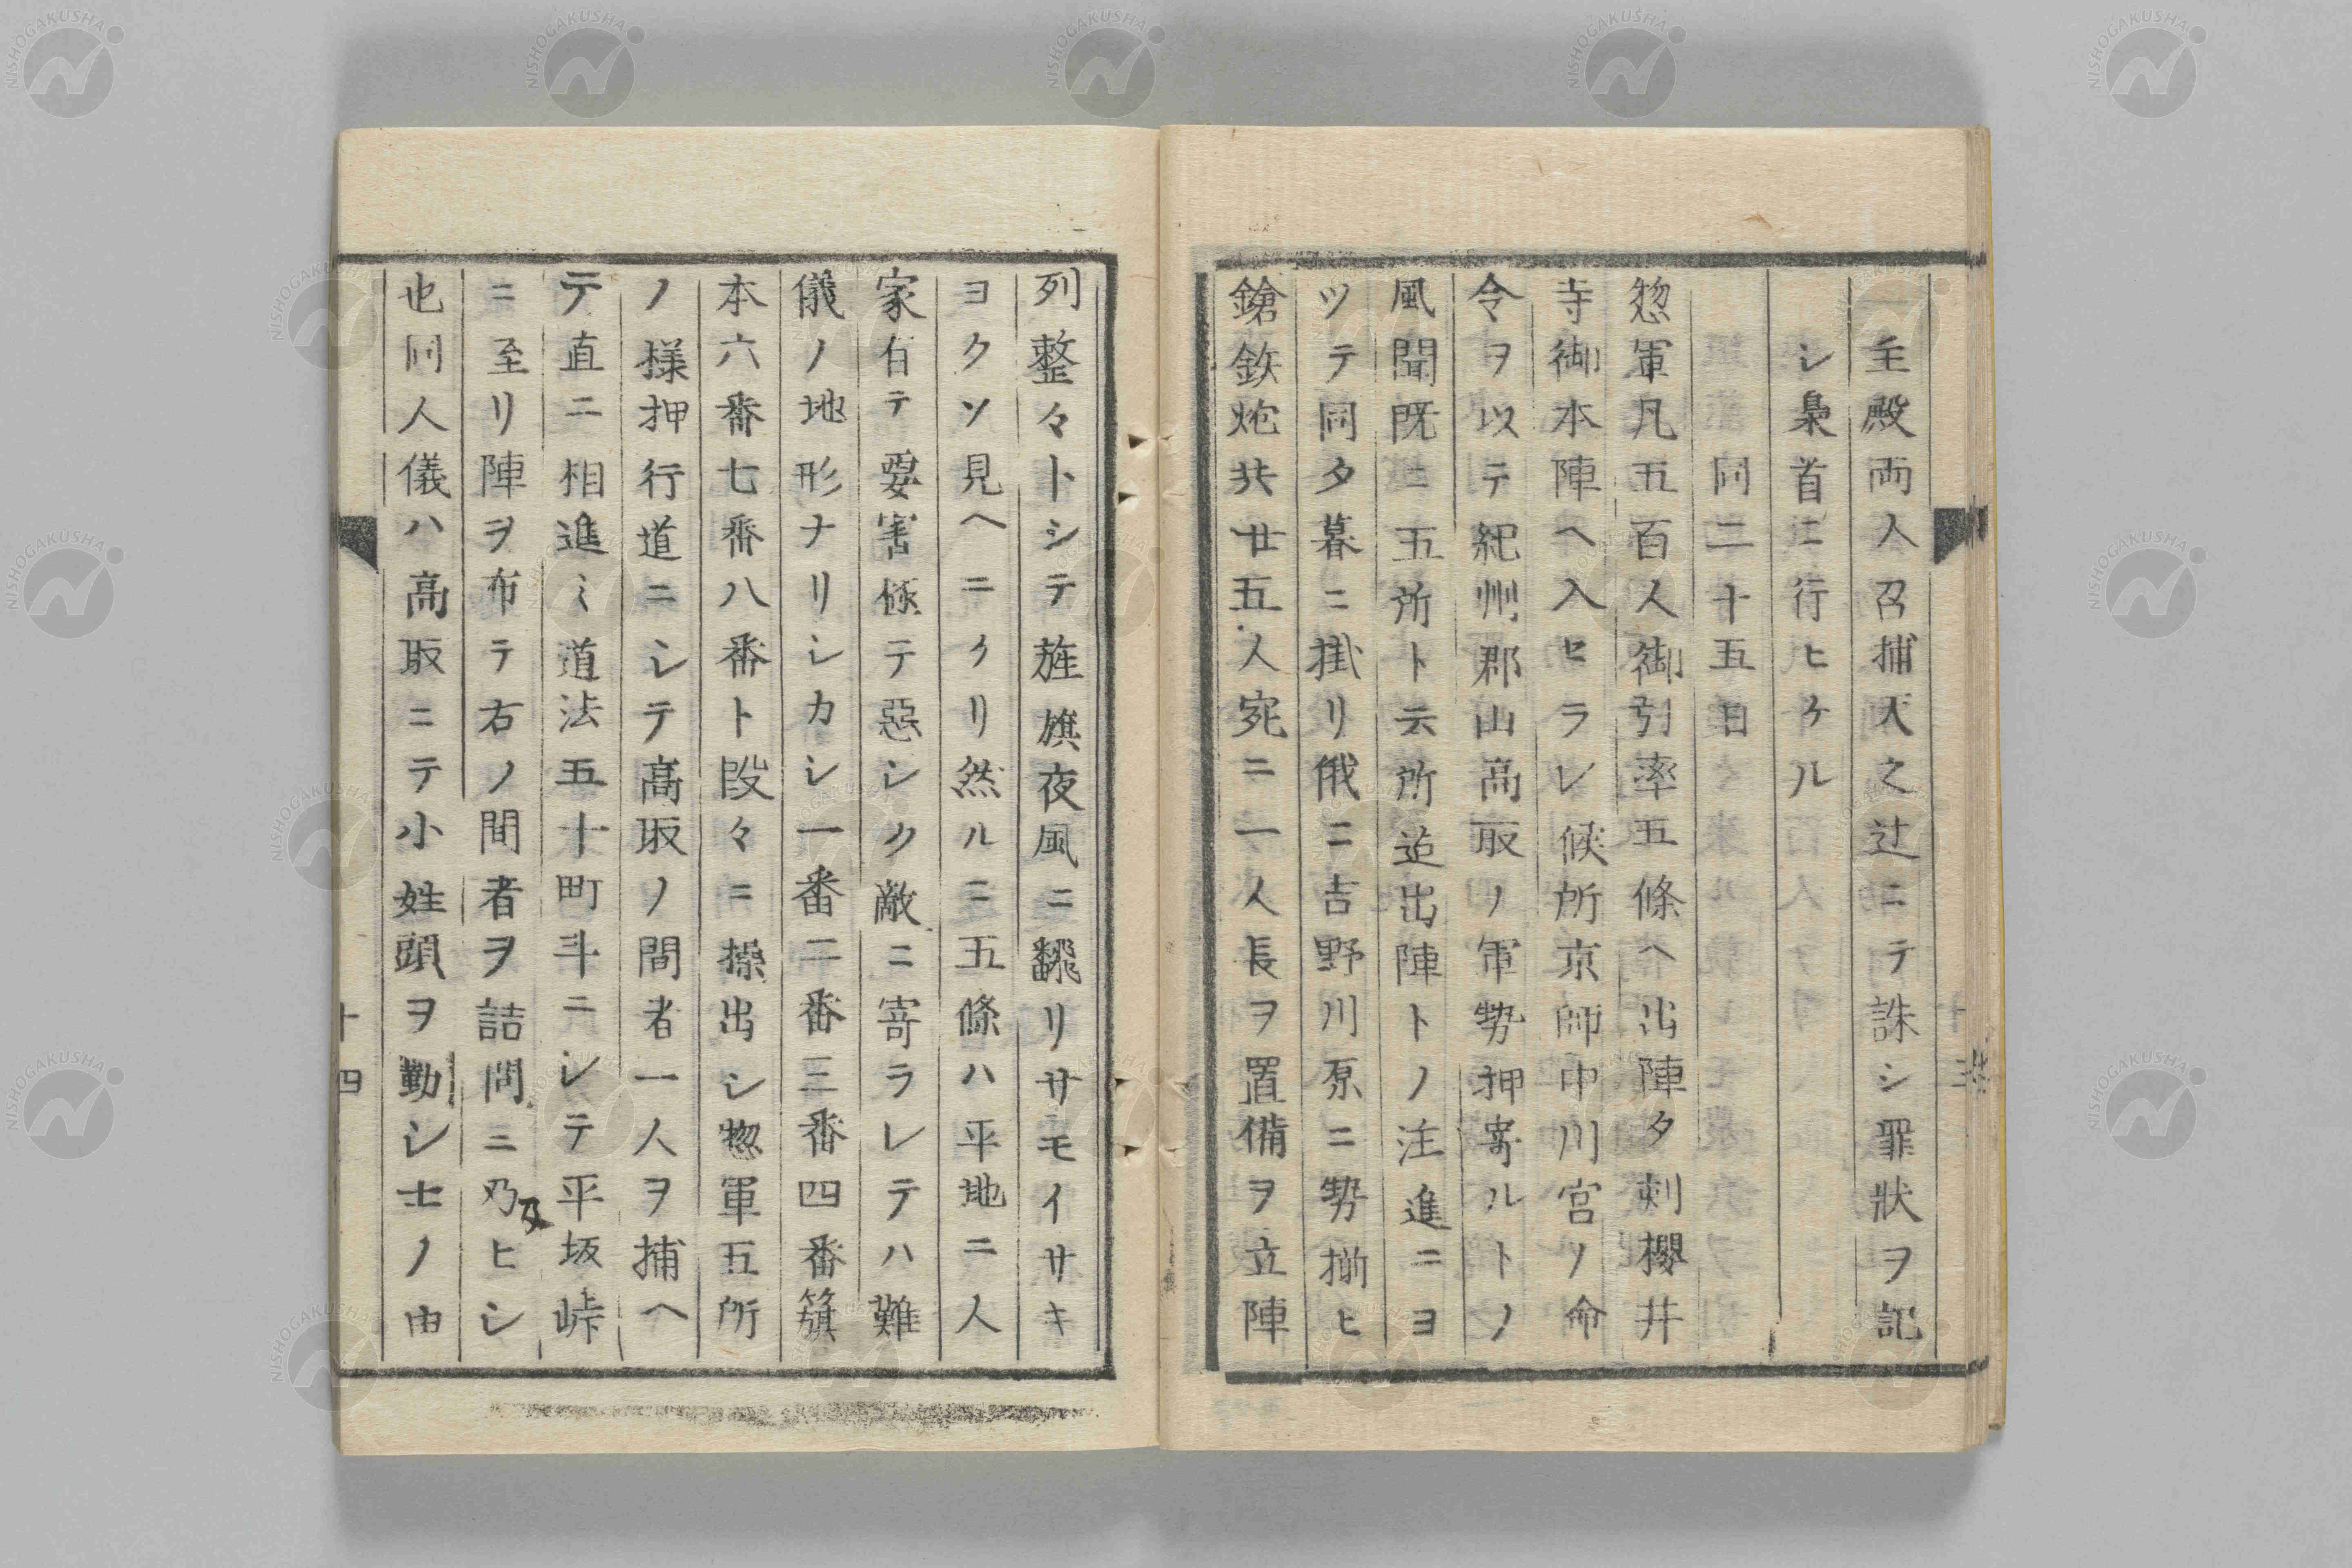 主殿両人召捕天之辻ニテ誅シ罪狀ヲ記
シ梟首ニ行ヒケル
同二十五日
惣軍凡五百人御引率五條ヘ出陣夕刺櫻井
寺御本陣ヘ入セラレ候所京師中川宮ノ命
令ヲ以テ紀州郡山高取ノ軍勢押寄ルトノ
風聞既ニ五所ト云所迠出陣トノ注進ニヨ
ツテ同夕暮ニ掛リ俄ニ吉野川原ニ勢揃ヒ
鎗鉃炮共廿五人宛ニ一人長ヲ置備ヲ立陣
列整々トシテ旌旗夜風ニ飜リサモイサキ
ヨクソ見ヘニクリ然ルニ五條ハ平地ニ人
家有テ要害極テ惡シク敵ニ寄ラレテハ難
儀ノ地形ナリシカシ一番二番三番四番籏
本六番七番八番ト段々ニ操出シ惣軍五所
ノ様押行道ニシテ高取ノ間者一人ヲ捕ヘ
テ直ニ相進ミ道法五十町斗ニシテ平坂峠
ニ至リ陣ヲ布テ右ノ間者ヲ詰問ニ乃ヒシ
及
也同人儀ハ高取ニテ小姓頭ヲ勤シ士ノ由
十四
NISHOGAKUSHA